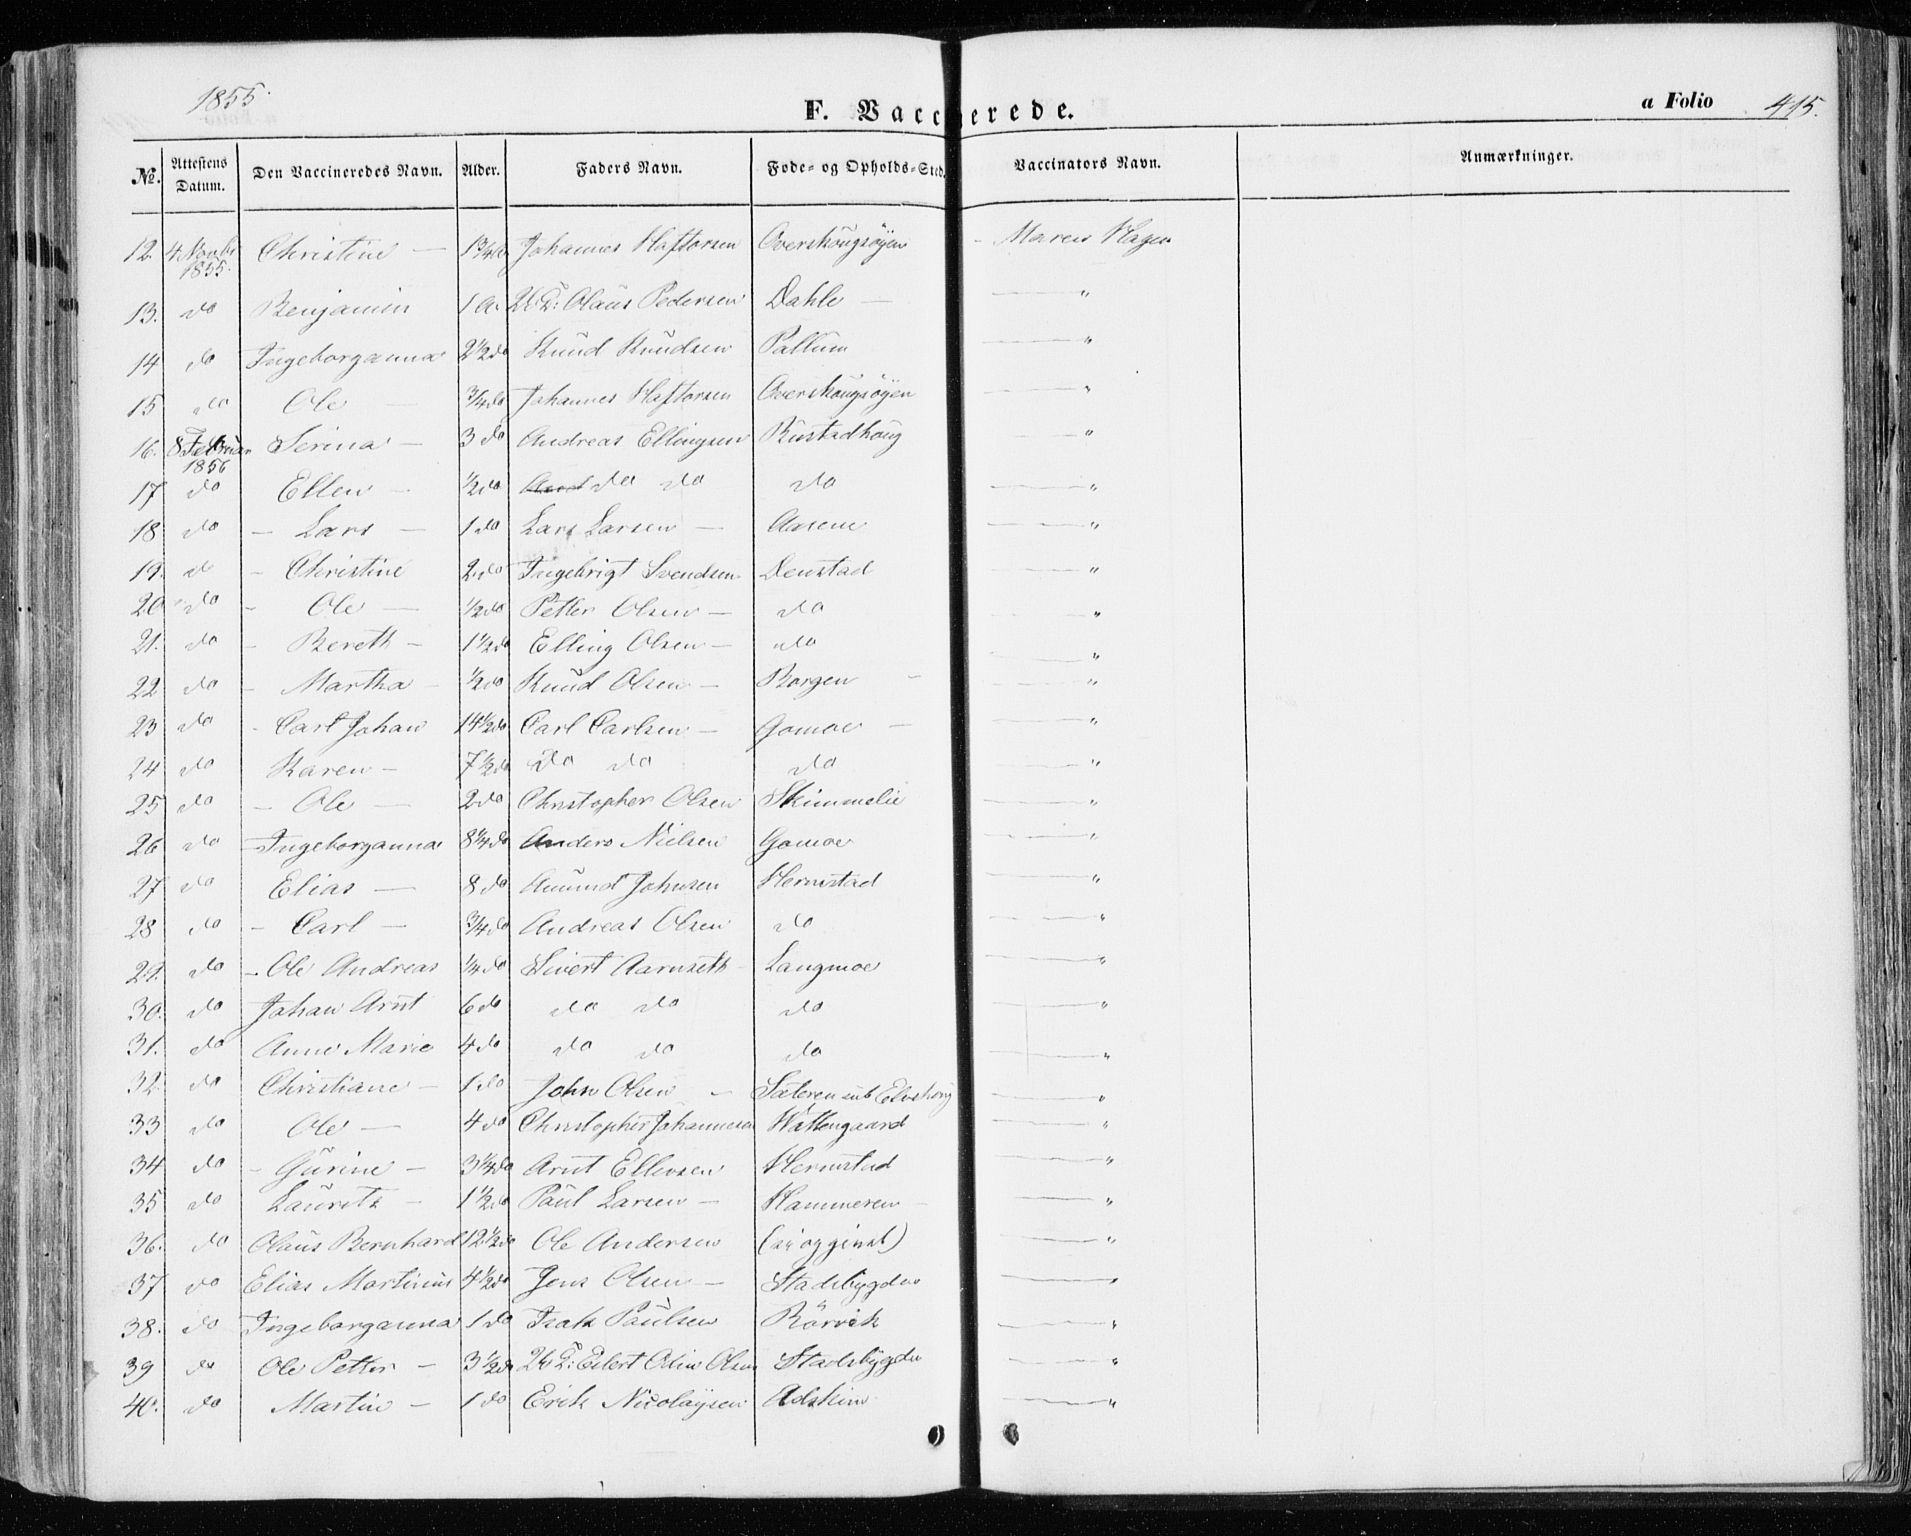 1855.
F. Vaccinerede.
a Folio 415.
No. Attestens Datum. Den Vaccineredes Navn. Alder. Faders Navn. Føde- og Opholds-Sted. Vaccinators Navn. Anmærkninger.
12. 4 Novbr 1855. Christine — 1 3/4 Johannes Haftorsen Overskougsøyen - Maren Hagen
13. do Benjamin 1 Olaus Pedersen Dahle — — "
14 do Ingeborganna 2 1/2 do Knud Knudsen Pallum — "
15 do Ole — 3/4 do Johannes Haftorsen Overskougsøyen — "
16. 8 Februar 1856 Serina — 3 do Andreas Ellingsen Rustadhoug — "
17 do Ellen - 1/2 do do do do — "
18 do - Lars — 1 do Lars Larsen — Aasene — "
19. do - Christine 2 do Ingebrigt Svendsen Denstad — "
20 do - Ole — 1/2 do Petter Olsen — do — "
21. do - Bereth - 1 1/2 do Elling Olsen — do — "
22 do - Martha - 1/2 do Knud Olsen — Borgen - — "
23 do - Carl Johan 14 1/2 do Carl Carlsen — Gomoe — — "
24 do Karen — 7 1/2 do do do do — "
25 do - Ole — 2 do Christopher Olsen Skimmelie — "
26 do Ingeborganna 8 1/4 do Anders Nielsen Gomoe — "
27 do Elias — 8 do Amund Johnsen Hermstad — "
28 do - Carl — 3/4 do Andreas Olsen do — "
29. do - Ole Andreas 1/4 do Sivert Aarnseth Langmoe — "
30. do Johan Arnt 6 do do do do — "
31. do Anne Marie 4 do do do do — "
32 do Christiane - 1 do John Olsen - Sæteren sub Elvehoug — "
33 do Ole — 4 do Christopher Johannesen Hattengaard — "
34 do - Gurine - 3 1/4 do Arnt Ellevsen Hermstad — "
35 do Lauritz - 1 1/2 do Paul Larsen — Hammeren - — "
36. do Olaus Bernhard 12 1/2 do Ole Andersen — "
37 do Elias Martinus 4 1/2 do Jens Olsen — Stadsbygden — "
38. do Ingeborganna 1 do Isak Paulsen Rörvik — "
39 do Ole Petter - 3 1/2 do Eilert Odin Olsen Stadsbygden — "
40. do Martin - 1 do Erik Nicolaysen Askim — "